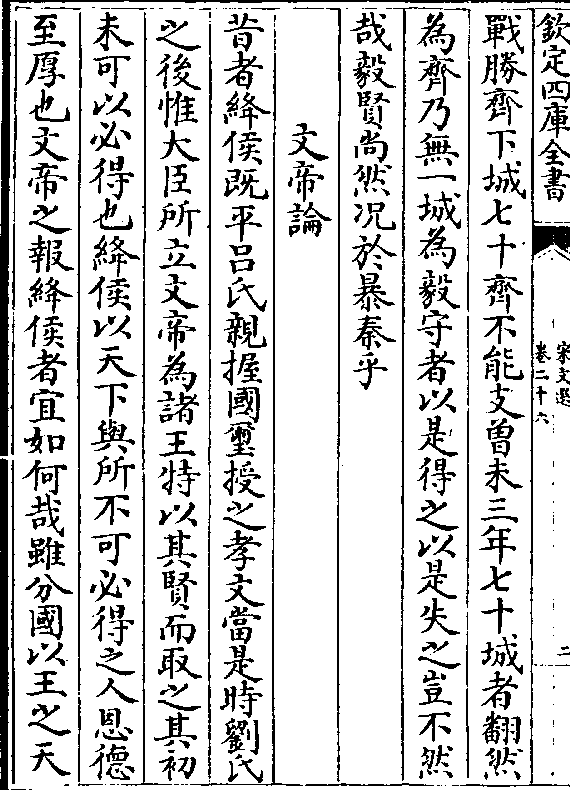 欽定四庫全書
宋文選
卷二十六
二
戰勝齊下城七十齊不能支曾未三年七十城者翻然
為齊乃無一城為毅守者以是得之以是失之豈不然
哉毅賢尚然况於暴秦乎
文帝論
昔者絳侯既平呂氏親握國璽授之孝文當是時劉氏
之後惟大臣所立文帝為諸王特以其賢而取之其初
未可以必得也絳侯以天下與所不可必得之人恩德
至厚也文帝之報絳侯者宜如何哉雖分國以王之天